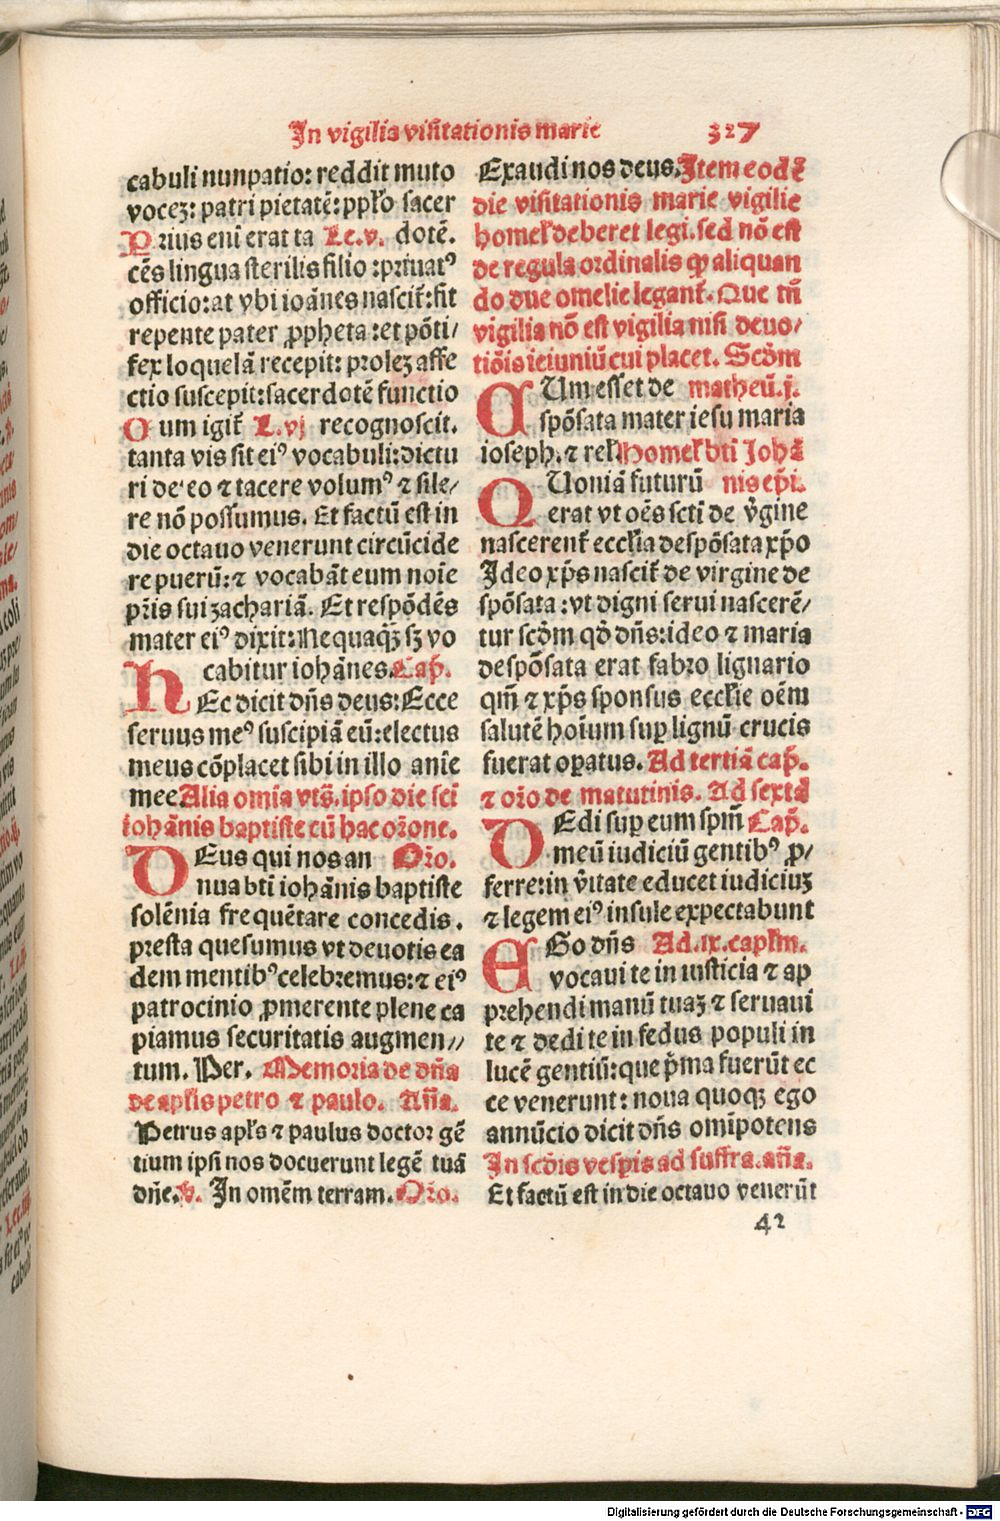 In vigilia visitationis marie 327
cabuli nunpatio: reddit muto
vocez: patri pietatē: ppło sacer
Prius eni erat ta Le.v. dotē.
cēs lingua sterilis filio :priuatꝰ
officio: at vbi ioānes nascit̄: fit
repente pater ꝓpheta: et pōti/
fex loquelā recepit: prolez affe
ctio suscepit: sacerdotē functio
Oum igit̄ L.vj recognoscit.
tanta vis sit eiꝰ vocabuli: dictu
ri de eo ⁊ tacere volumꝰ ⁊ sile/
re nō possumus. Et factū est in
die octauo venerunt circūcide
re puerū: ⁊ vocabāt eum noīe
pr̄is sui zachariā. Et respōdēs
mater eiꝰ dixit: Nequaqꝫ sꝫ vo
cabitur iohānes. Cap̄.
hEc dicit dn̄s deus: Ecce
seruus meꝰ suscipiā eū: electus
meus cōplacet sibi in illo anīe
mee Alia omīa vts̄. ipso die sc̄i
iohānis baptiste cū hac or̄one.
DEus qui nos an Or̄o.
nua bt̄i iohānis baptiste
solēnia frequētare concedis.
presta quesumus vt deuotis ea
dem mentibꝰ celebremus: ⁊ eiꝰ
patrocinio ꝓmerente plene ca
piamus securitatis augmen//
tum. Per. Memoria de dn̄a
de apłis petro ⁊ paulo. An̄a.
Petrus apłs ⁊ paulus doctor gē
tium ipsi nos docuerunt legē tuā
dn̄e. v. In omēm terram. Or̄o.
Exaudi nos deus. Item eodē
die visitationis marie vigilie
homeł deberet legi. sed nō est
de regula ordinalis qꝫ aliquan
do due omelie legant̄. Que tn̄
vigilia nō est vigilia nisi deuo/
tiōis ieiuniū cui placet. Scd̄m
CUm esset de matheū.j.
spōsata mater iesu maria
ioseph. ⁊ reł. Homeł bt̄i Johā
QUoniā futurū nis ep̄i.
erat vt oēs sc̄ti de v̄gine
nascerent̄ eccłia despōsata xp̄o
Ideo xp̄s nascit̄ de virgine de
spōsata: vt digni serui nascerē/
tur scd̄m qd̄ dn̄s: ideo ⁊ maria
despōsata erat fabro lignario
qm̄ ⁊ xp̄s sponsus eccłie oēm
salutē hoīum suꝑ lignū crucis
fuerat oꝑatus. Ad tertiā cap̄.
⁊ or̄o de matutinis. Ad sextā
DEdi suꝑ eum spm̄ Cap̄.
meū iudiciū gentibꝰ ꝓ/
ferre: in v̄itate educet iudiciuꝫ
⁊ legem eiꝰ insule expectabunt
EGo dn̄s Ad.ix.capłm.
vocaui te in iusticia ⁊ ap
prehendi manū tuaꝫ ⁊ seruaui
te ⁊ dedi te in fedus populi in
lucē gentiū: que p̄ma fuerūt ec
ce venerunt: noua quoqꝫ ego
annūcio dicit dn̄s omīpotens
In scd̄is vesꝑis ad suffra.an̄a.
Et factū est in die octauo venerūt
42
Digitalisierung gefördert durch die Deutsche Forschungsgemeinschaft - DFG